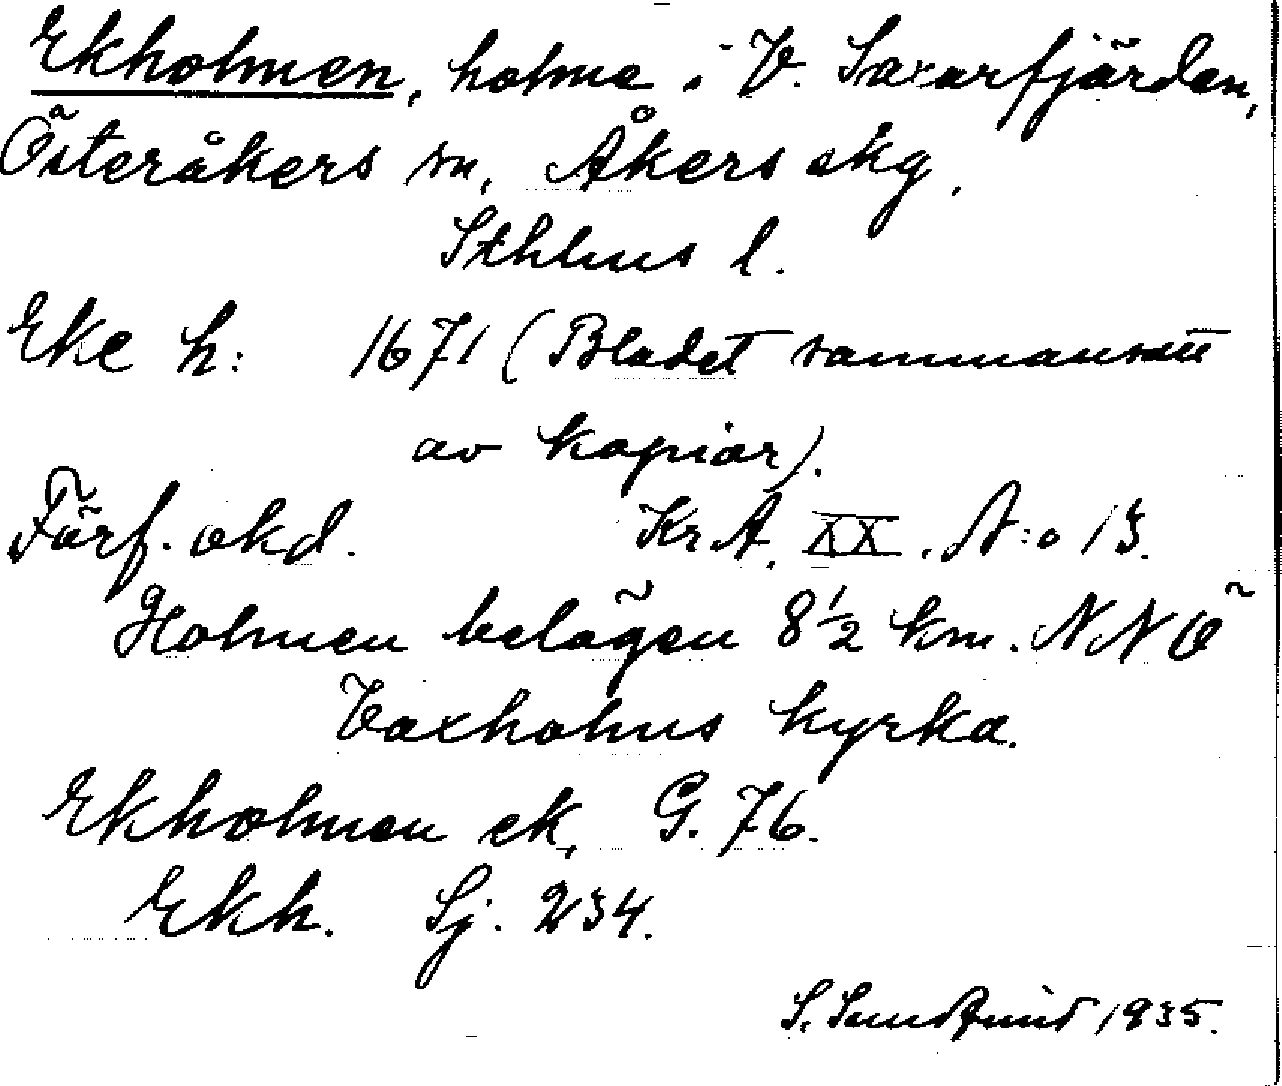 Ekholmen, holme i V. Saxarfjärden,
Österåkers sn, Åkers skg,
Sthlms l.
Eke h: 1671 (Bladet sammansatt
av kopior).
Förf. okd. KrA. XX. N:o 13.
Holmen belägen 8½ km. NNÖ
Vaxholms kyrka.
Ekholmen ek, G. 76.
Ekh. Sj. 234.
S. Sundqvist 1935.